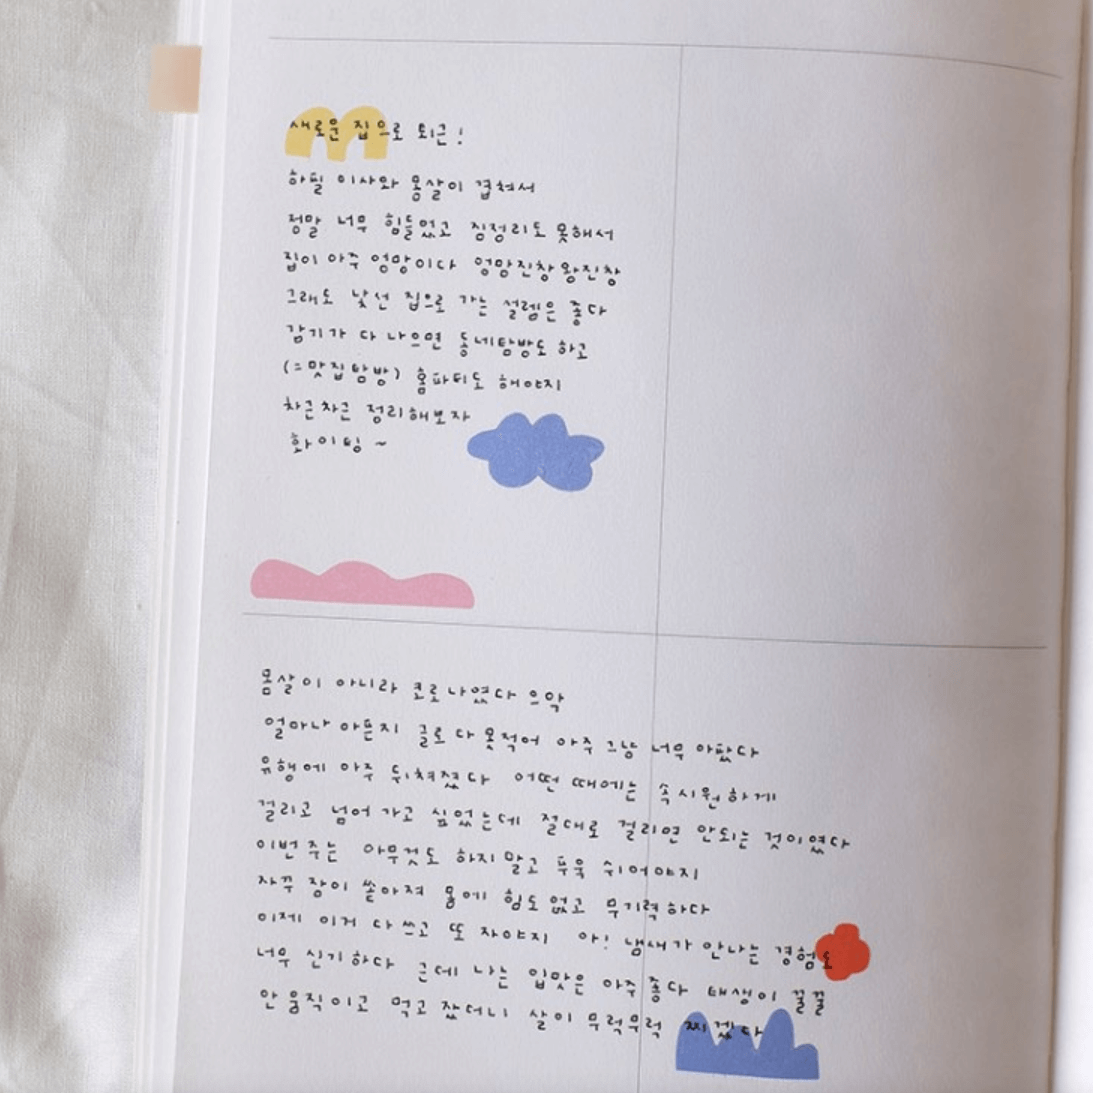 새로운 집으로 퇴근!
하필 이사와 몸살이 겹쳐서
정말 너무 힘들었고 짐정리도 못해서
집이 아주 엉망이다 엉망진창왕진창
그래도 낯선 집으로 가는 설렘은 좋다
감기가 다 나으면 동네탐방도 하고
(=맛집탐방) 홈파티도 해야지
차근차근 정리해보자
화이팅~
몸살이 아니라 코로나였다 으악
얼마나 아픈지 글로 다 못적어 아주 그냥 너무 아팠다
유행에 아주 뒤쳐졌다 어떤 때에는 속시원하게
걸리고 넘어가고 싶었는데 절대로 걸리면 안되는 것이였다
이번주는 아무것도 하지말고 푸욱 쉬어야지
자꾸 잠이 쏟아져 몸에 힘도 없고 무기력하다
이제 이거 다 쓰고 또 자야지 아! 냄새가 안나는 경험도
너무 신기하다 근데 나는 입맛은 아주 좋다 태생이 꿀꿀
안 움직이고 먹고 잤더니 살이 무럭무럭 찌겠다